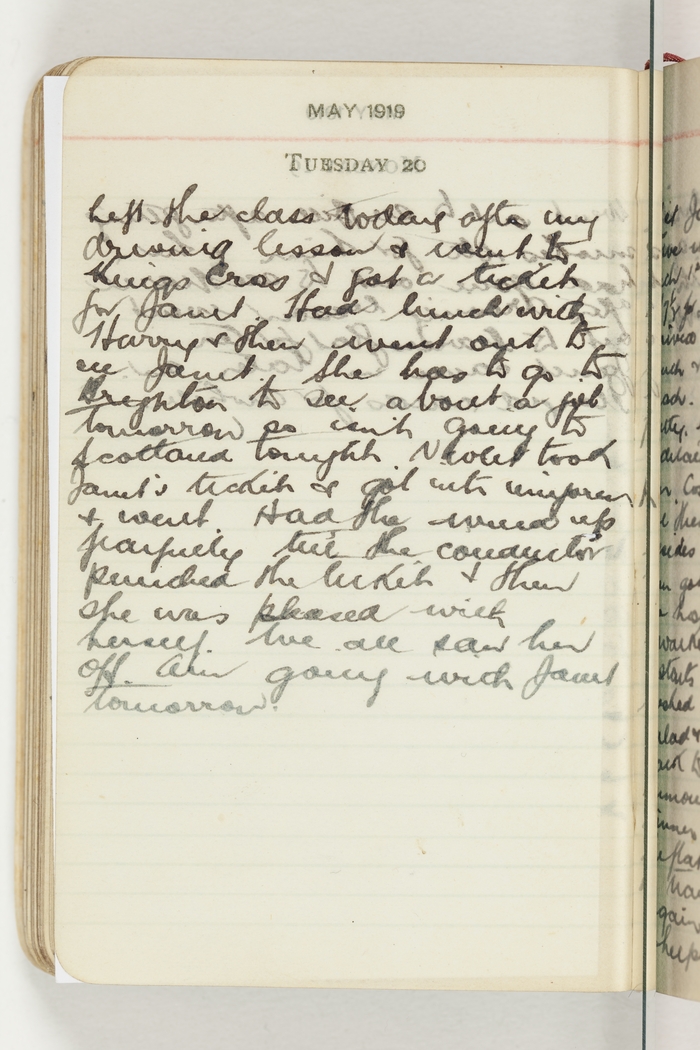 MAY 1919
TUESDAY 20
Left the class today after my
driving lesson & went to
Kings Cross & got a ticket
for Janet. Had lunch with
Harry & then went out to
see Janet. She has to go to
Brighton to see about a job
tomorrow so isn't going to
Scotland tonight. Violet took
Janet's ticket & got into uniform
& went. Had the wind up
properly till the conductor
punched the ticket & then
she was pleased with
herself. We all saw her
off. Am going with Janet
tomorrow.